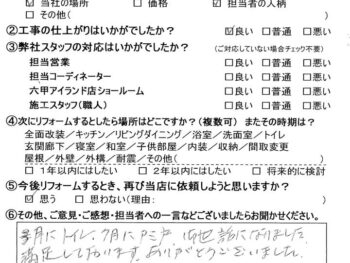 ☑当社の場所 □価格 ☑担当者の人柄
□その他(
②工事の仕上がりはいかがでしたか? ☑良い □普通 □悪い
③弊社スタッフの対応はいかがでしたか? (ご対応していない場合チェック不要)
担当営業 □良い □普通 □悪い
担当コーディネーター □良い □普通 □悪い
六甲アイランド店ショールーム □良い □普通 □悪い
施工スタッフ(職人) □良い □普通 □悪い
④次にリフォームするとしたら場所はどこですか?(複数可) またその時期は?
全面改装/キッチン/リビングダイニング/浴室/洗面室/トイレ
玄関廊下/寝室/和室/子供部屋/内装/収納/間取変更
屋根/外壁/外構/耐震/その他(
□1年以内にはしたい □2年以内にはしたい □将来的に検討
⑤今後リフォームするとき、再び当店に依頼しようと思いますか?
☑思う □思わない(理由:
⑥その他、ご意見・ご感想・担当者への一言などございましたらお聞かせください。
月にトイレ、7月に お世話になりました
満足しております。ありがとうございました。